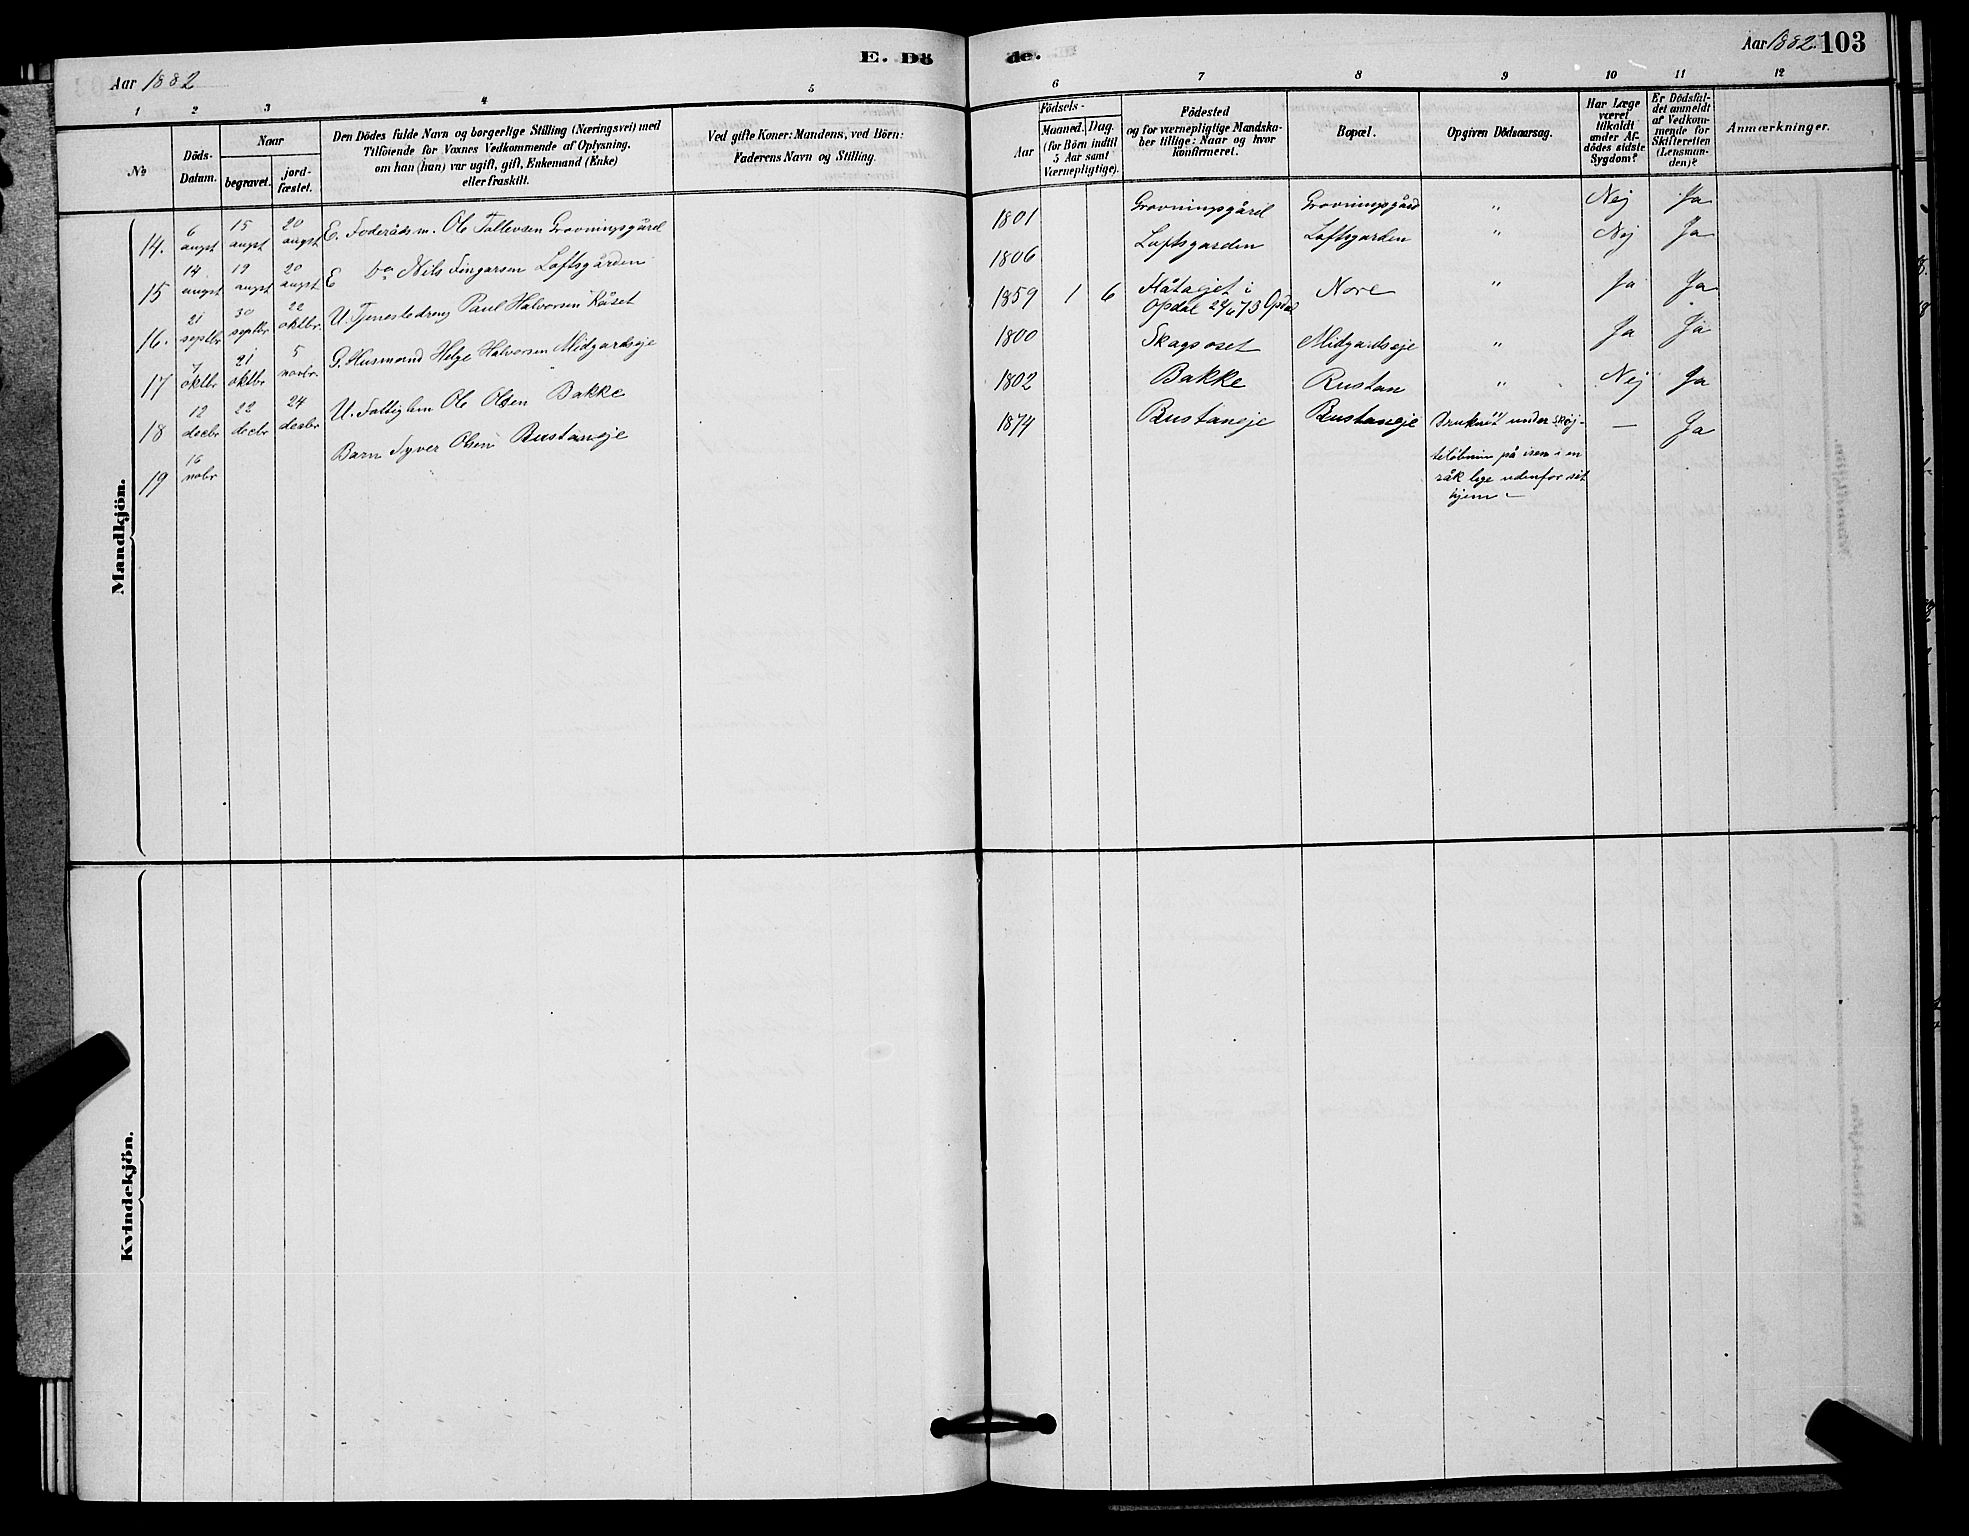 E. Dö de.
Aar 1882
Aar 1882. 103
1 2 3 4 5 6 7 8 9 10 11 12
No
Döds-Datum.
Naar
begravet.
jord-fæstet.
Den Dödes fulde Navn og borgerlige Stilling (Næringsvei) med
Tilföiende for Voxnes Vedkommende af Oplysning,
om han (hun) var ugift, gift, Enkemand (Enke)
eller fraskilt.
Ved gifte Koner: Mandens, ved Börn:
Faderens Navn og Stilling.
Födsels-
Aar
Maaned. Dag.
(for Börn indtil
5 Aar samt
Værnepligtige).
Födested
og for værnepligtige Mandska-
ber tillige: Naar og hvor
konfirmeret.
Bopæl.
Opgiven Dödsaarsag.
Har Læge
været
tilkaldt
under Af-
dödes sidste
Sygdom?
Er Dödsfal-
det anmeldt
af Vedkom-
mende for
Skifteretten
(Lensman-
den)?
Anmærkninger.
Mandkjön.
14. 6 augst 15 augst 20 augst E. Föderådsm. Ole Tollevsen Grovningsgård 1801 Grovningsgård Grovningsgård " Nej Ja
15 14 augst 19 augst 20 augst E do Nils Fingarsen Loftsgården 1806 Loftsgarden Loftsgarden " Nej Ja
16. 21 septbr 30 septbr 22 oktbr. U. Tjenestedreng Paul Halvorsen Råset 1859 1 6 Håtaejet i Opdal 24/6 73 Opdal Nore " Ja Ja
17 7 oktbr 21 oktbr 5 novbr. G. Husmand Helge Halvorsen Midgardseje 1800 Skagsoset Midgardseje " Ja Ja
18 12 decbr 22 decbr 24 decbr U. Fattiglem Ole Olsen Bakke 1802 Bakke Rustan " Nej Ja
19 16 nobr Barn Syver Olsen Rustaneje 1874 Rustaneje Rustaneje Druknet under skøj-
teløbning på isen i en
råk lige udenfor sit
hjem — Ja
Kvindekjön.